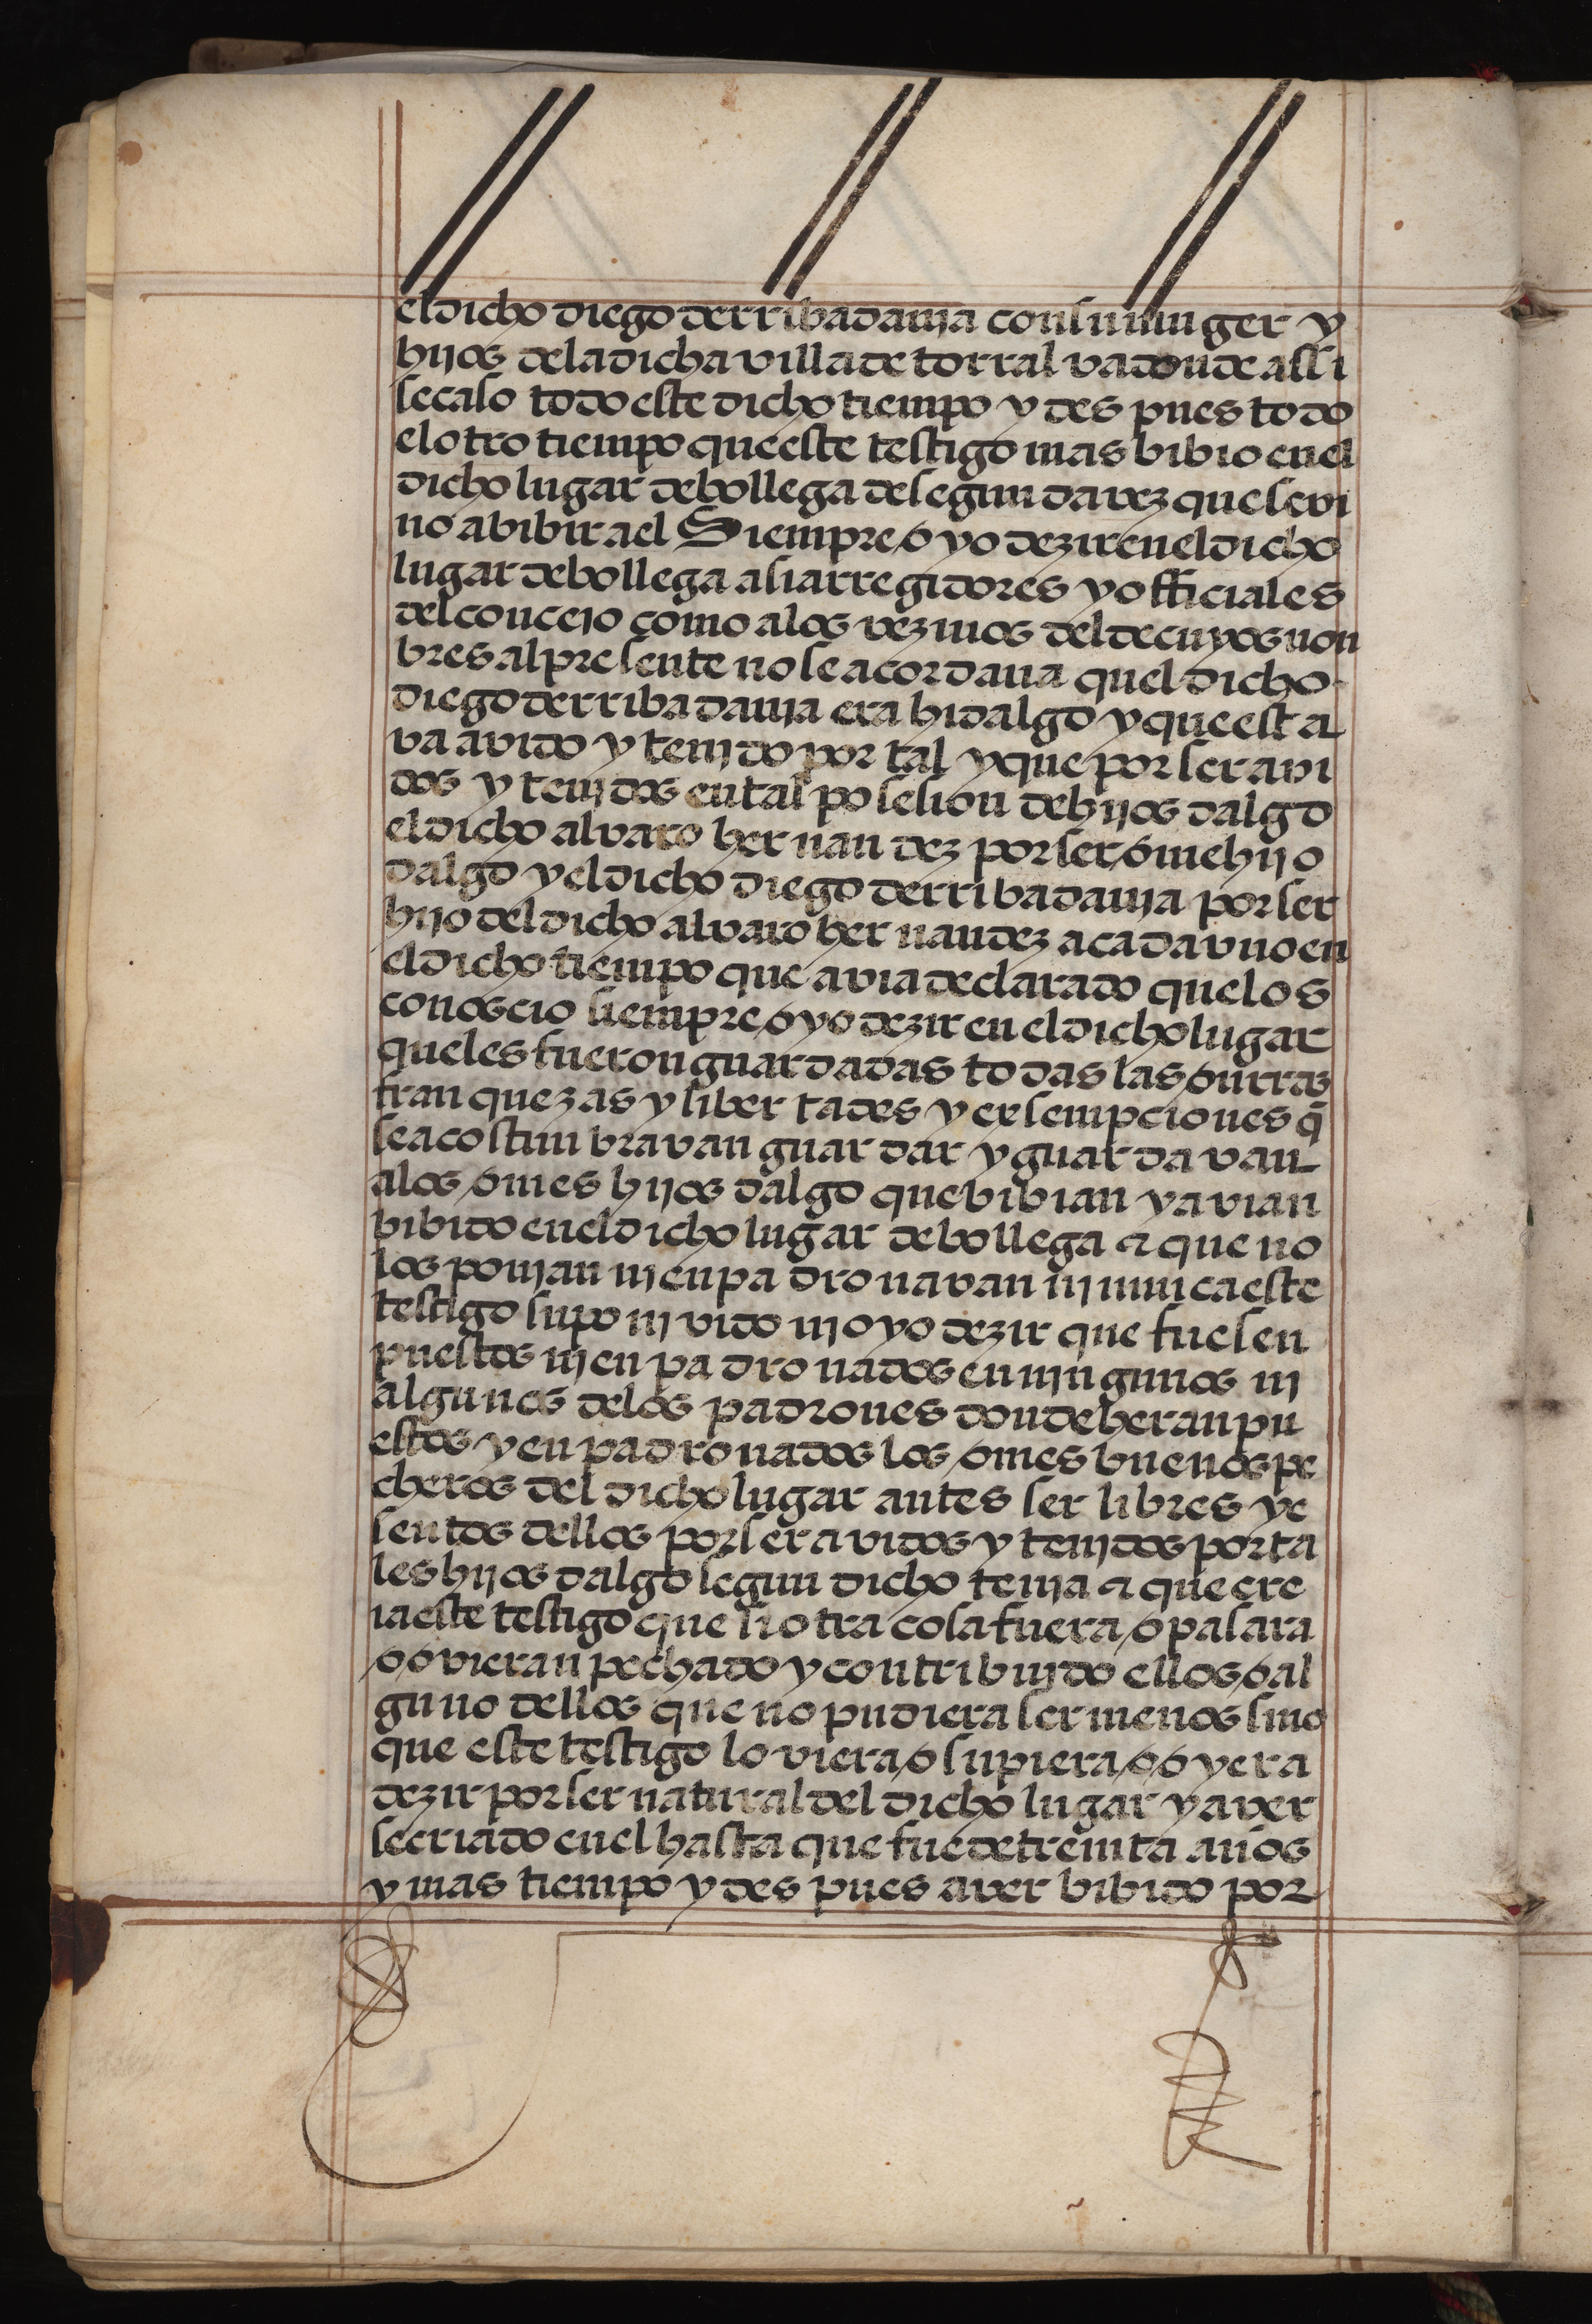 el dicho diego de rribadavia con su muger y
hijos de la dicha villa de torralva donde assi
se caso todo este dicho tiempo y despues todo
el otro tiempo que este testigo mas bibio en el
dicho lugar de bollega de segunda vez que se vi
no a bibir a el Siempre oyo dezir en el dicho
lugar de bollega asi a rregidores y officiales
del concejo como a los vezinos del de cuyos non
bres al presente no se acordava quel dicho
diego de rribadavia era hidalgo y que esta
va avido y tenido por tal y que por ser avi
dos y tenidos en tal posesion de hijos dalgo
el dicho alvaro hernandez por ser ome hijo
dalgo y el dicho diego de rribadavia por ser
hijo del dicho alvaro hernandez a cada vno en
el dicho tiempo que avia declarado que los
conoscio siempre oyo dezir en el dicho lugar
que les fueron guardadas todas las onrras
franquezas y libertades y exsempciones q̃
se acostunbravan guardar y guardavan
a los omes hijos dalgo que bibian y avian
bibido en el dicho lugar de bollega & que no
los ponian ni enpadronavan ni nunca este
testigo supo ni vido ni oyo dezir que fuesen
puestos ni enpadronados en ningunos ni
algunos de los padrones donde heran pu
estos y enpadronados los omes buenos pe
cheros del dicho lugar antes ser libres y e
sentos dellos por ser avidos y tenidos por ta
les hijos dalgo segun dicho tenia & que cre
ia este testigo que si otra cosa fuera o pasara
o ovieran pechado y contribuido ellos o al
guno dellos que no pudiera ser menos sino
que este testigo lo viera o supiera o oyera
dezir por ser natural del dicho lugar y aver
se criado en el hasta que fue de treinta años
y mas tiempo y despues aver bibido por